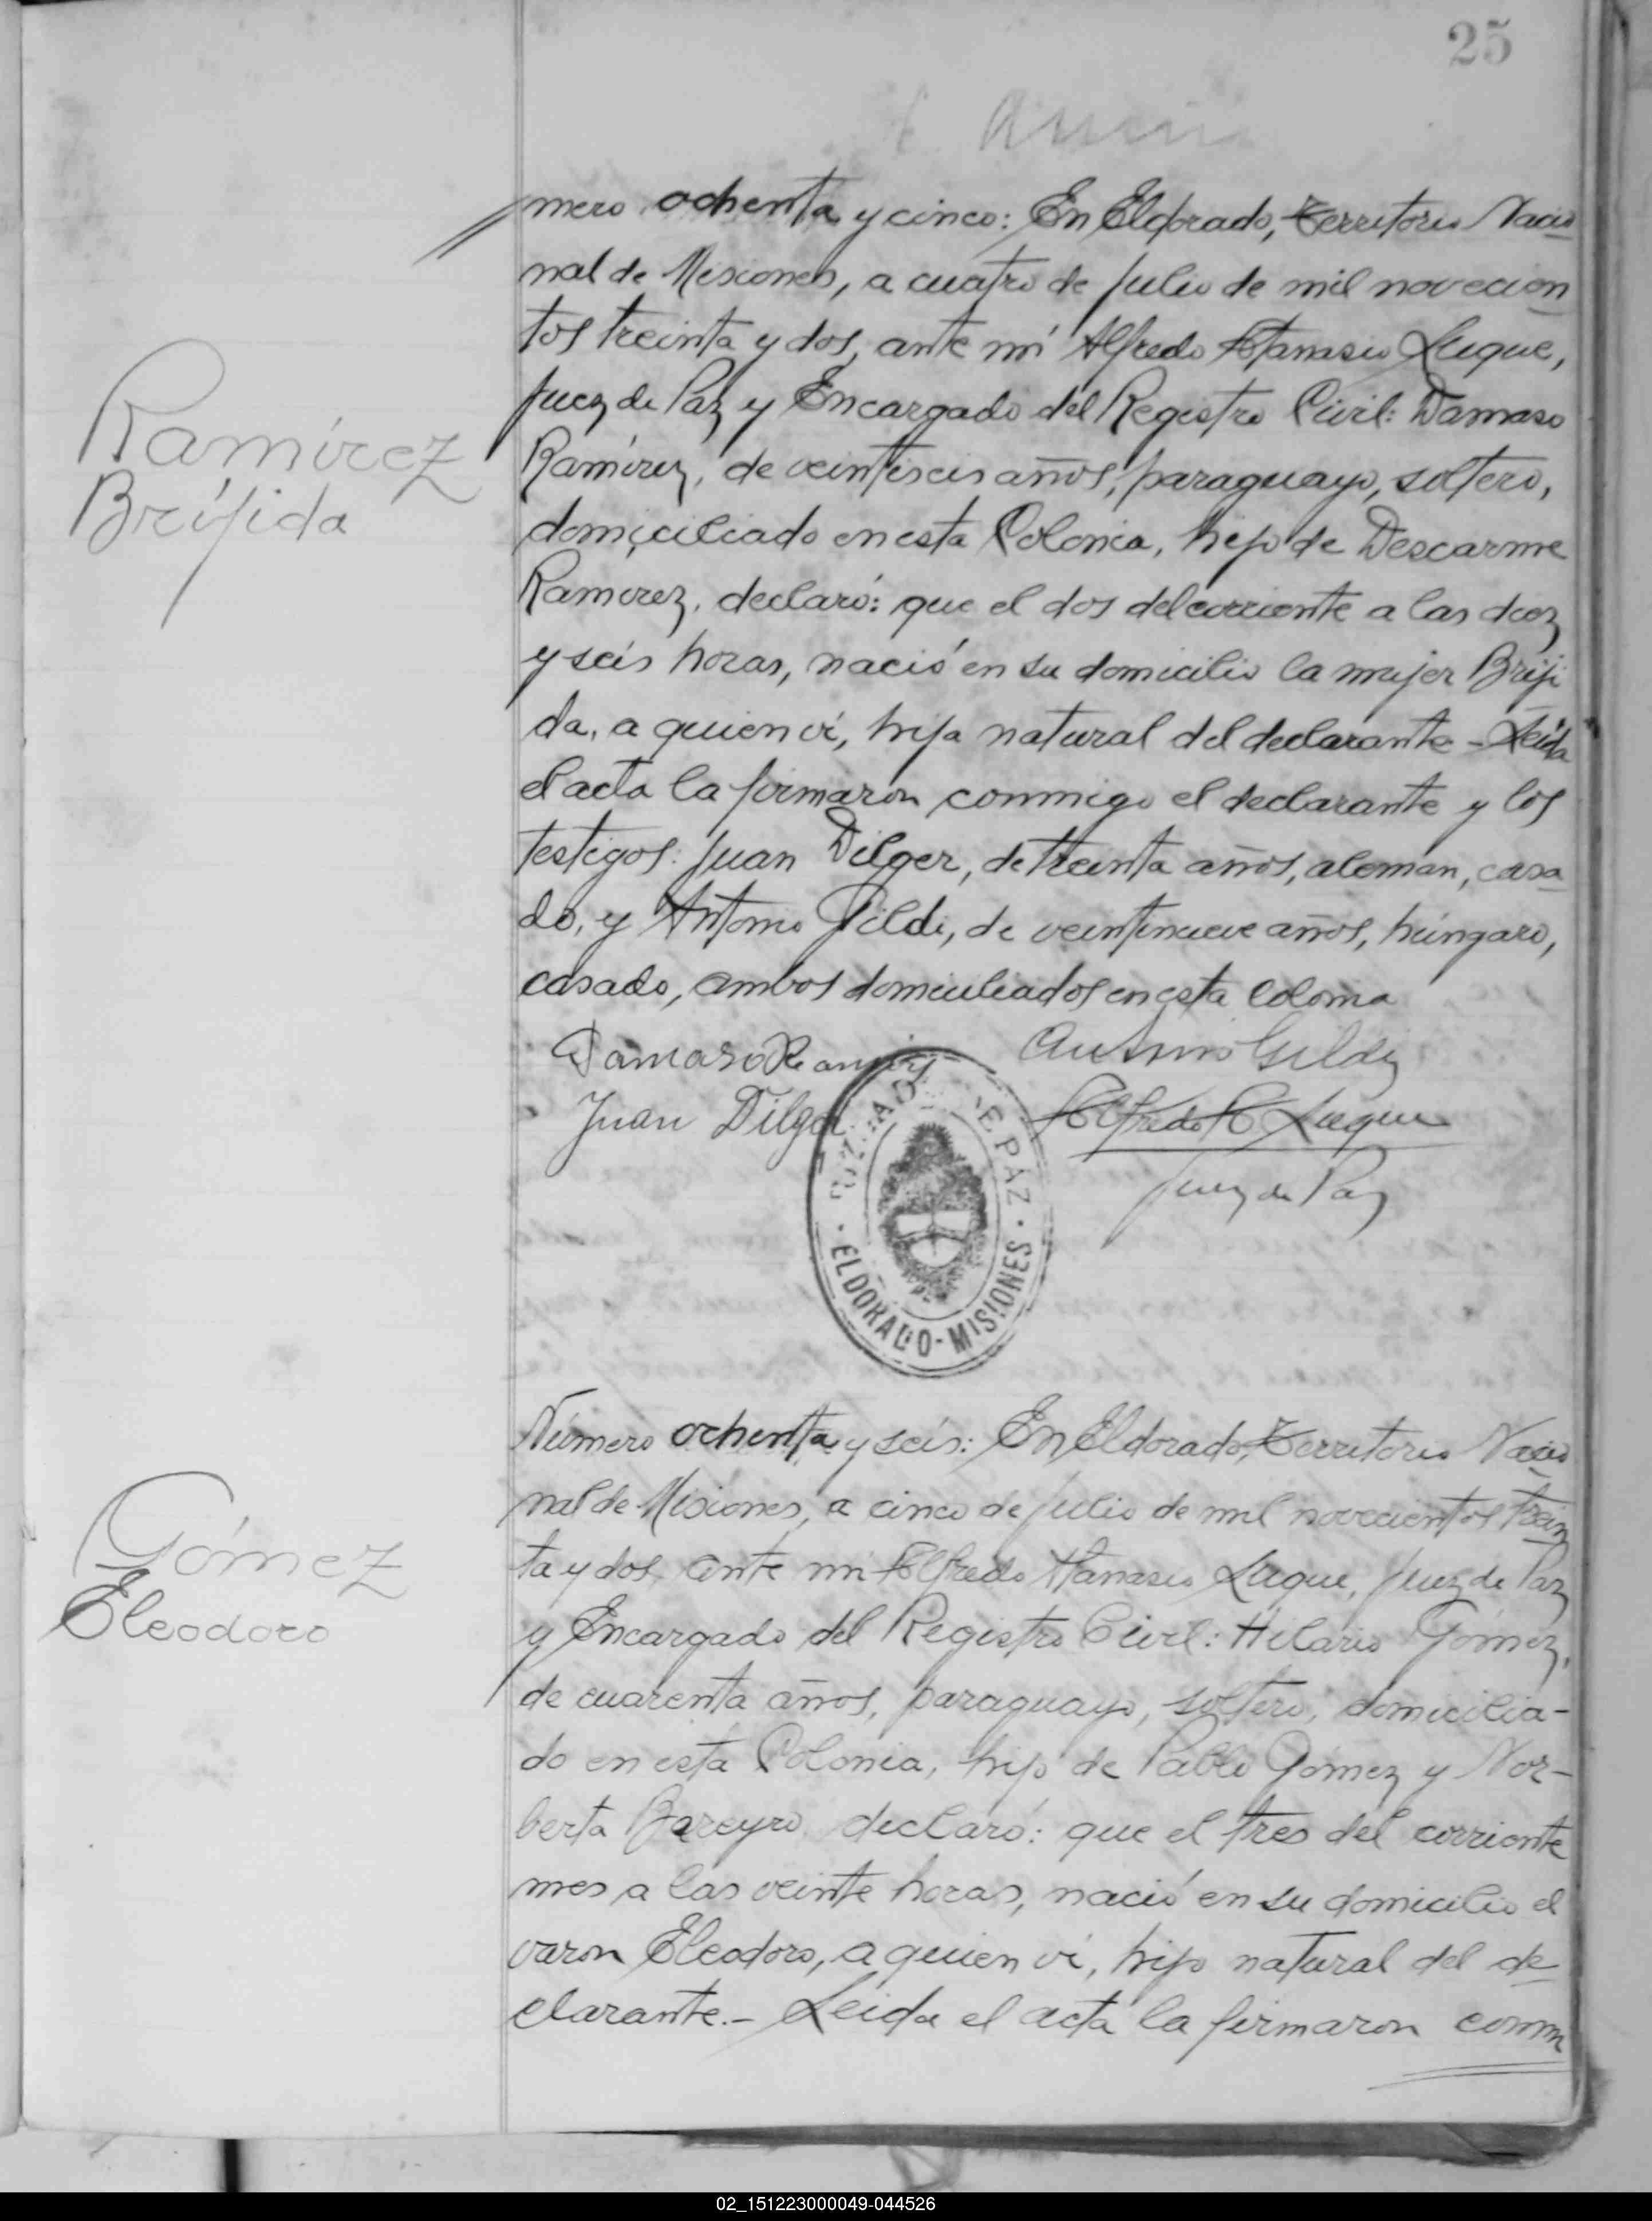 25
mero ochenta y cinco: En Eldorado, Territorio Nacio
nal de Misiones, a cuatro de julio de mil novecien
tos treinta y dos, ante mi Alfredo Atanasio Luque,
Juez de Paz y Encargado del Registro Civil: Damaso
Ramírez, de veintiseis años, paraguayo, soltero,
domiciliado en esta Colonia, hijo de Descarme
Ramirez, declaró: que el dos del corriente a las diez
y seis horas, nació en su domicilio la mujer Briji
da, a quien vi, hija natural del declarante - Leida
el acta la firmaron conmigo el declarante y los
testigos: Juan Dilger, de treinta años, aleman, casa
do, y Antonio Gildi, de veintinueve años, húngaro,
casado, ambos domiciliados en esta Colonia
Ramírez
Bríjida
Damaso Ramirez Antonio Gildi
Juan Dilger Alfredo A Luque
Juez de Paz
JUZGADO DE PAZ
ELDORADO - MISIONES
Número ochenta y seis: En Eldorado, Territorio Nacio
nal de Misiones, a cinco de julio de mil novecientos trein
ta y dos, ante mi Alfredo Atanasio Luque, Juez de Paz
y Encargado del Registro Civil: Hilario Gómez,
de cuarenta años, paraguayo, soltero, domicilia-
do en esta Colonia, hijo de Pablo Gómez y Nor-
berta Bareyro, declaró: que el tres del corriente
mes a las veinte horas, nació en su domicilio el
varon Eleodoro, a quien vi, hijo natural del de
clarante.- Leida el acta la firmaron conm
Gómez
Eleodoro
02_151223000049-044526